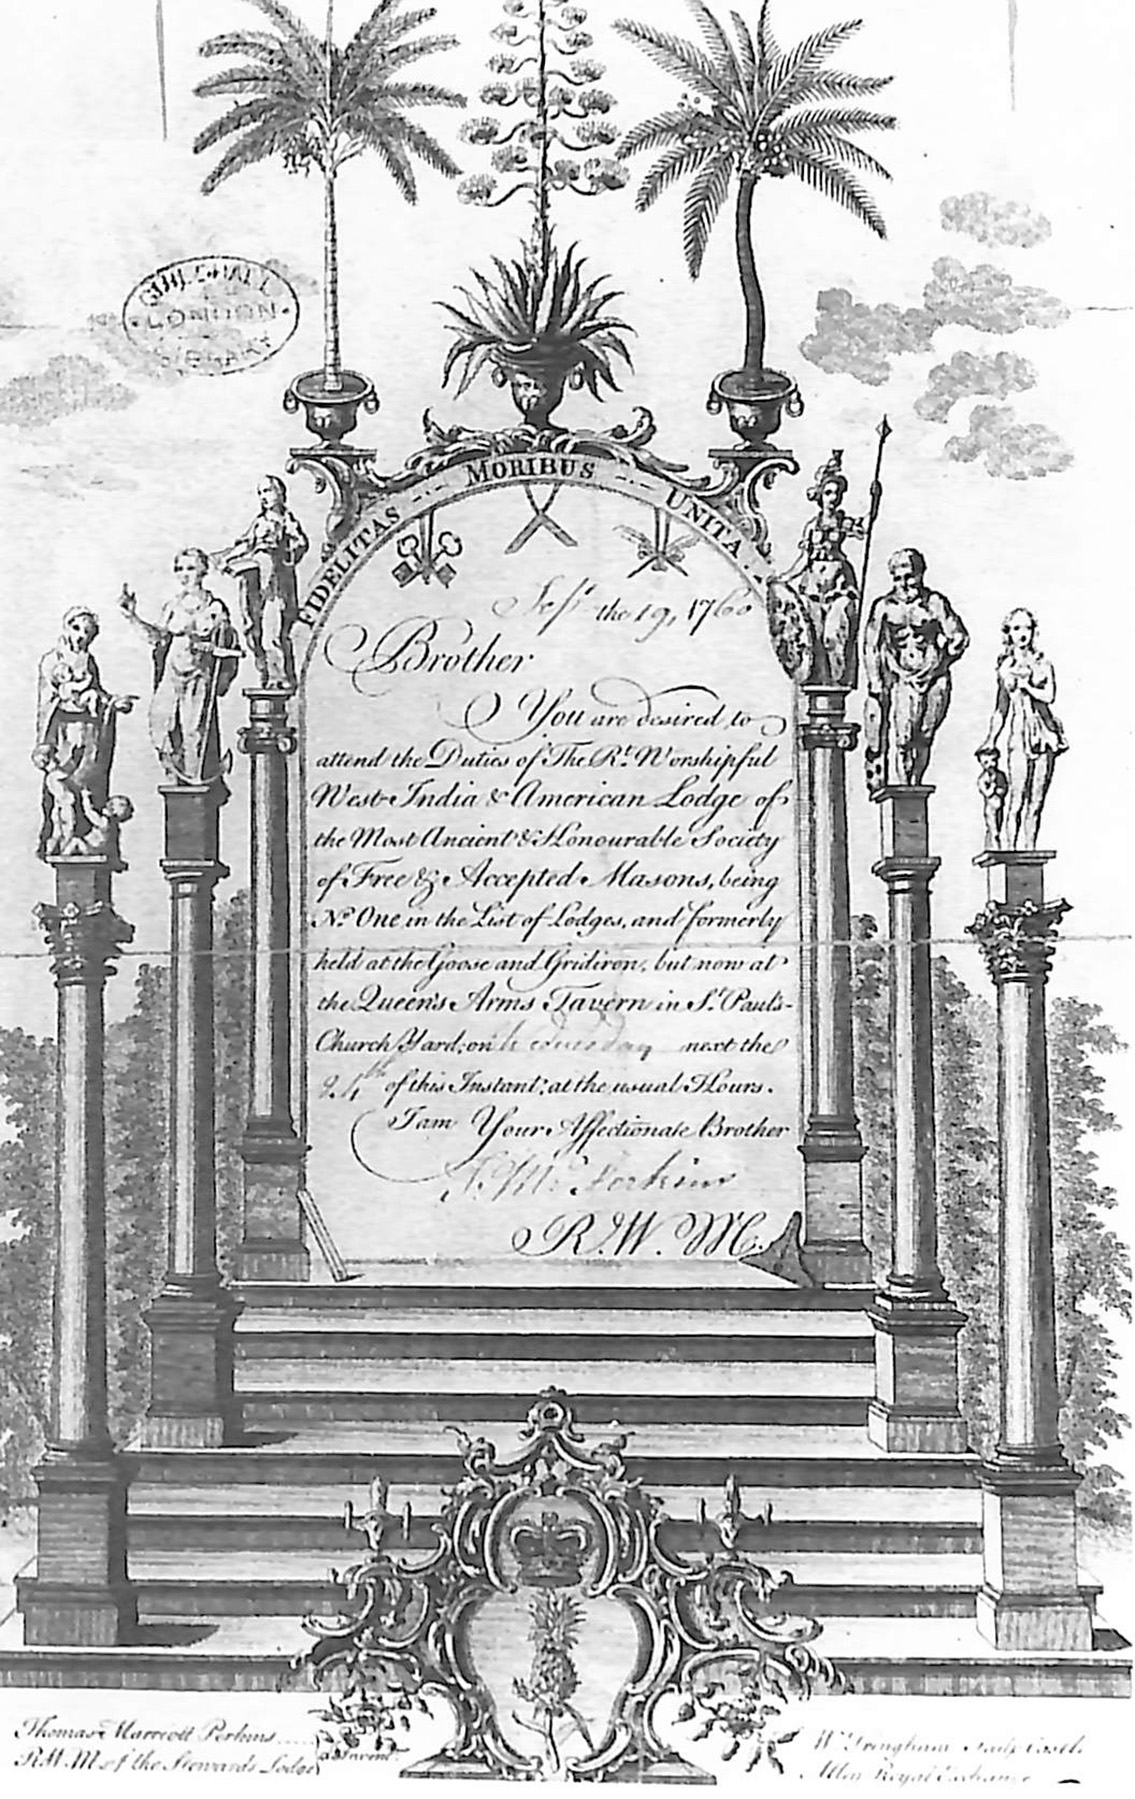 GUILDHALL
LONDON
LIBRARY
FIDELITAS MORIBUS UNITA.
Sepr. the 19, 1760
Brother
You are desired to
attend the Duties of The Rt. Worshipful
West-India & American Lodge of
the Most Ancient & Honourable Society
of Free & Accepted Masons, being
No. One in the List of Lodges, and formerly
held at the Goose and Gridiron, but now at
the Queen's Arms Tavern in St. Paul's-
Church Yard; on Wednesday next the
24th of this Instant; at the usual Hours.
I am Your Affectionate Brother
Perkins
R. W. M.
Thomas Marriott Perkins
R.W.M. of the Stewards Lodge Invent.
Wm. Tringham Sculp. Castle
Alley Royal Exchange